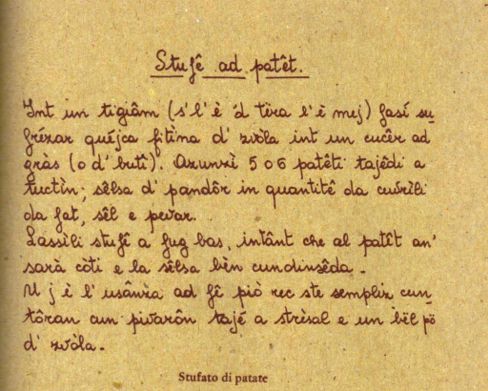 Stufê ad patêt.
Int un tigiâm (s'l'è 'd tèra l'è mej) fasí su
frézar quéjca fitina d' zvòla int un cucêr ad
gràs (o d' butî). Azunzì 5 o 6 patêti tajêdi a
tuctìn, sêlsa d' pandôr in quantitê da cuvrìli
da fat, sêl e pevar.
Lassìli stufê a fug bas, intânt che al patêt an'
sarà còti e la sêlsa bèn cundinsêda.
U j è l' usânza ad fê piò rec ste semplix cun-
tôran cun pivarôn tajé a strèsal e un bêl pô
d' zvòla.
Stufato di patate